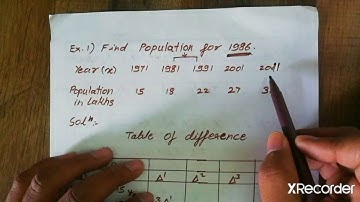 Ex.1) Find Population for 1986.
Year (x) 1971 1981 1991 2001
Population 15 18 22 27
in lakhs
Solⁿ:-
Table of difference
Δ¹ Δ² Δ³
XRecorder